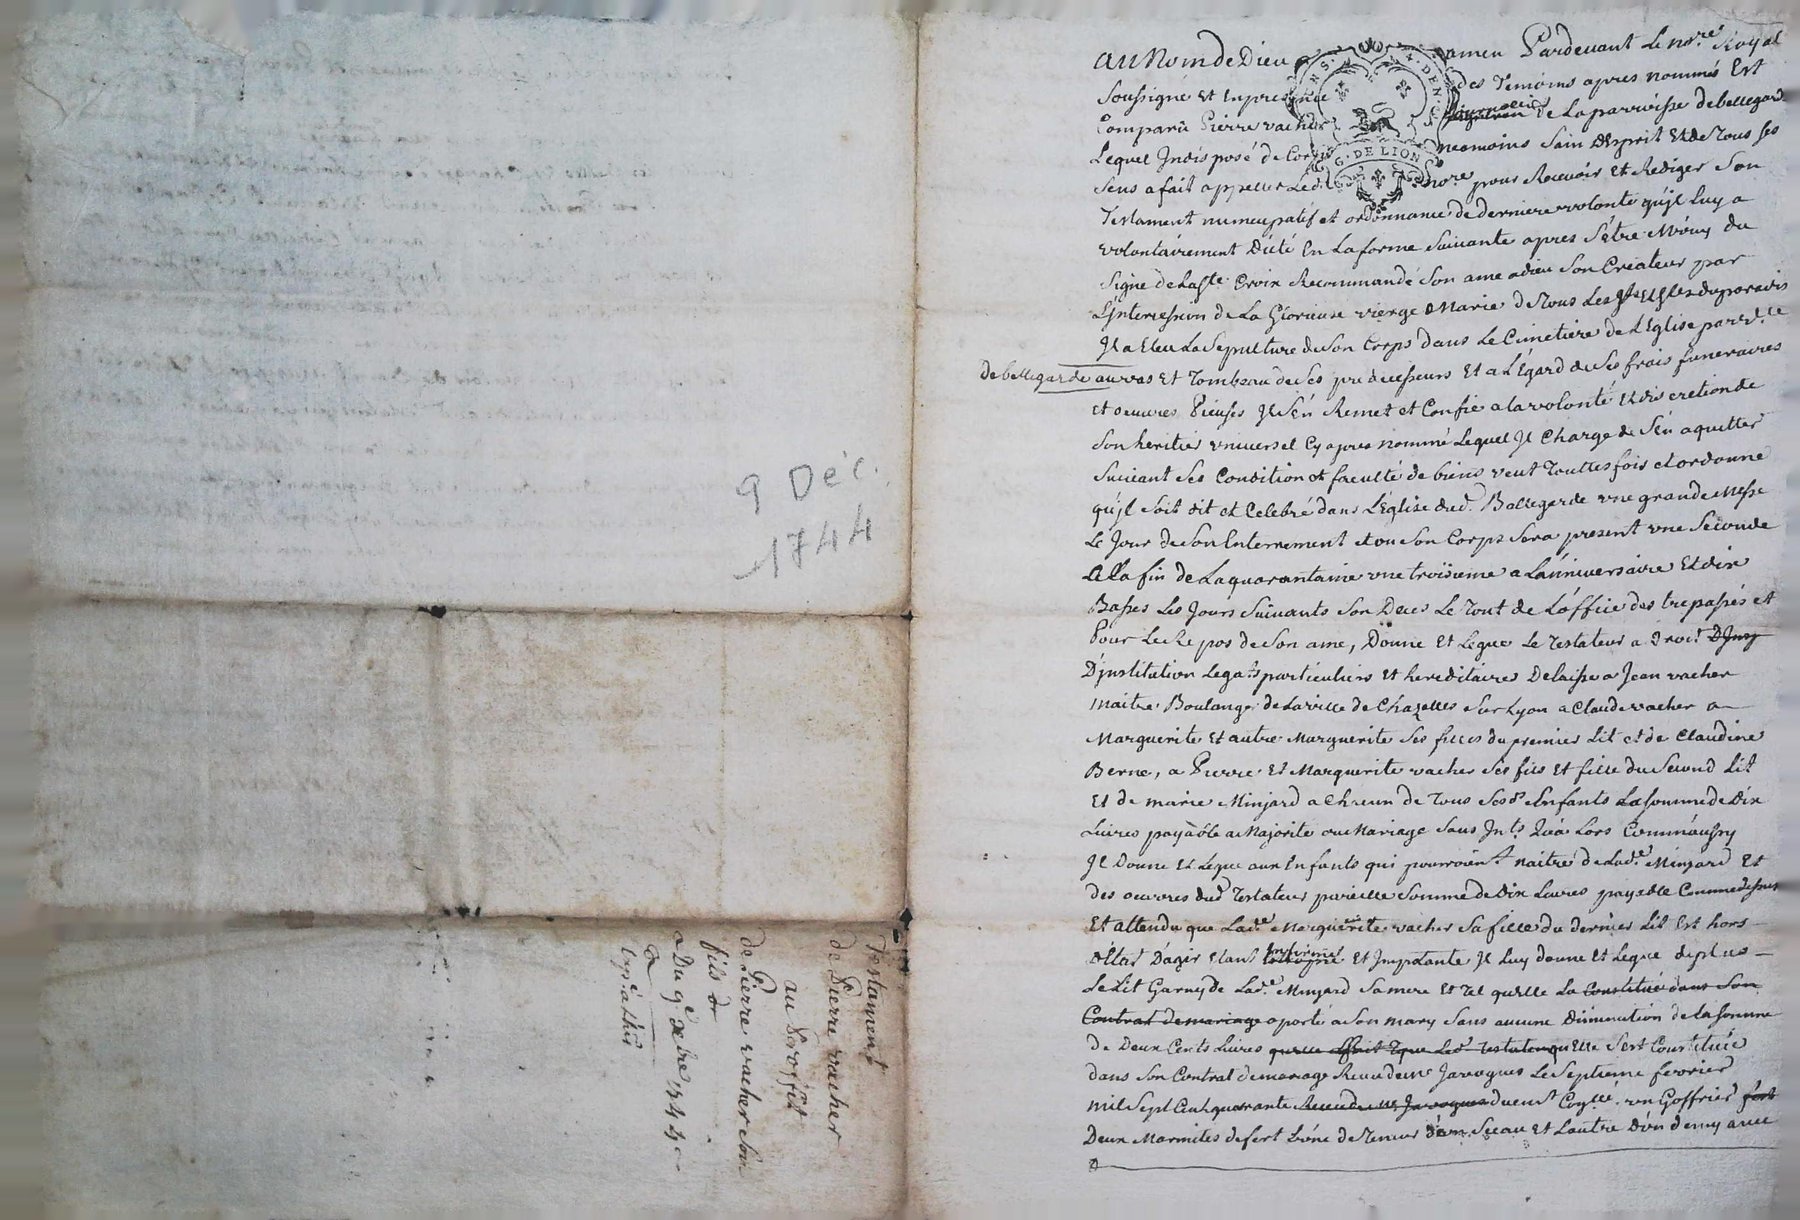 9 Déc.
1744
Testament
de Pierre vacher
au proffit
de Pierre vacher son
fils
Du 9e xbre 1744
au Nom de Dieu amen Pardevant Le nore. Royal
Soussigné Et En presence des Temoins apres nommés Est
Comparu Pierre vacher de La parroisse de bellegarde
Lequel Indisposé de Corps neamoins Sain D'Esprit Et de Tous ses
Sens a fait appeller Led. nore. pour Recevoir Et Rediger Son
Testament nuncupatif et ordonnance de derniere volonté qu'jl Luy a
volontairement Dicté En La forme Suivante apres S'etre Muny du
Signe de La Ste. Croix Recommandé Son ame a dieu Son Createur par
L'Intercession de La Glorieuse vierge Marie de Tous Les Sts Et Stes du paradis
Jl a Eleu La Sepulture de Son Corps dans Le Cimetiere de L'Eglise parrlle
De bellegarde au vas Et Tombeau de Ses predecesseurs Et a L'Egard de Ses frais funeraires
Et oeuvres Pieuses Jl S'En Remet et Confie a la volonté Et discretion de
Son heritier vniversel Cy apres nommé Lequel Jl Charge de S'En aquitter
Suivant Ses Condition et faculté de biens veut Touttes fois et ordonne
qu'jl Soit dit et Celebré dans L'Eglise dud. Bellegarde vne grande Messe
Le Jour de Son Enterrement et ou Son Corps Sera present vne Seconde
A La fin de La quarantaine vne troisieme a L'anniversaire Et dix
Basses Les Jours Suivants Son Deces Le Tout de L'office des trepassés et
Pour Le Repos de Son ame, Donne Et Legue Le Testateur a Droit D'Jns
D'jnstitution Legats particuliers Et hereditaires Delaisse a Jean vacher
Maitre Boulanger de La ville de Chazelles Sur Lyon a Claude vacher a
Marguerite Et autre Marguerite Ses filles du premier Lit et de Claudine
Berne, a Pierre Et Marguerite vacher Ses fils Et fille du Second Lit
Et de marie Minjard a Chacun de Tous Sesd. Enfants La Somme de Dix
Livres payable a Majorité ou Mariage Sans Jnts. Jusqu'a Lors Comm'aussy
Jl Donne Et Legue aux Enfants qui pourroient naitre de Lade. Minjard Et
des oeuvres dud Testateur pareille Somme de Dix Livres payable Comme dessus
Et attendu que Lade. Marguerite vacher Sa fille du dernier Lit Est hors
d'Etat D'agir Etant infirme Et Impotante Jl Luy donne Et Legue de plus
Le Lit Garny de Lade. Minjard Sa mere Et Tel qu'Elle La Constitué dans Son
Contrat de mariage aporté a Son mary Sans aucune Diminution de la Somme
de Deux Cents Livres qu'Elle S'est Constituée
dans Son Contrat de mariage Receu de Me Javogues Le Septieme fevrier
mil Sept Cent quarante Receu de Me Javogues vn Goffrier
Deux Marmites de fert L'une de Teneur d'un Seau Et L'autre D'un demy avec